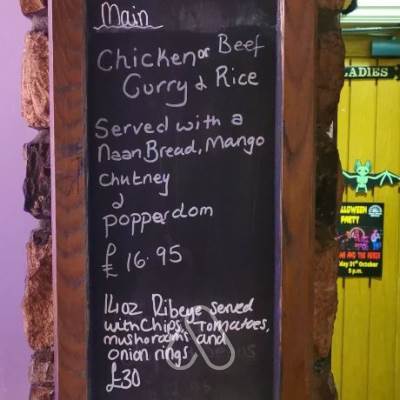 Main
Chicken or Beef
Curry & Rice
Served with a
Naan Bread, Mango
Chutney
&
popperdom
£16.95
14oz Ribeye served
with Chips, Tomatoes,
mushrooms and
onion rings
£30
LADIES
HALLOWEEN
PARTY
31st October
8 p.m.